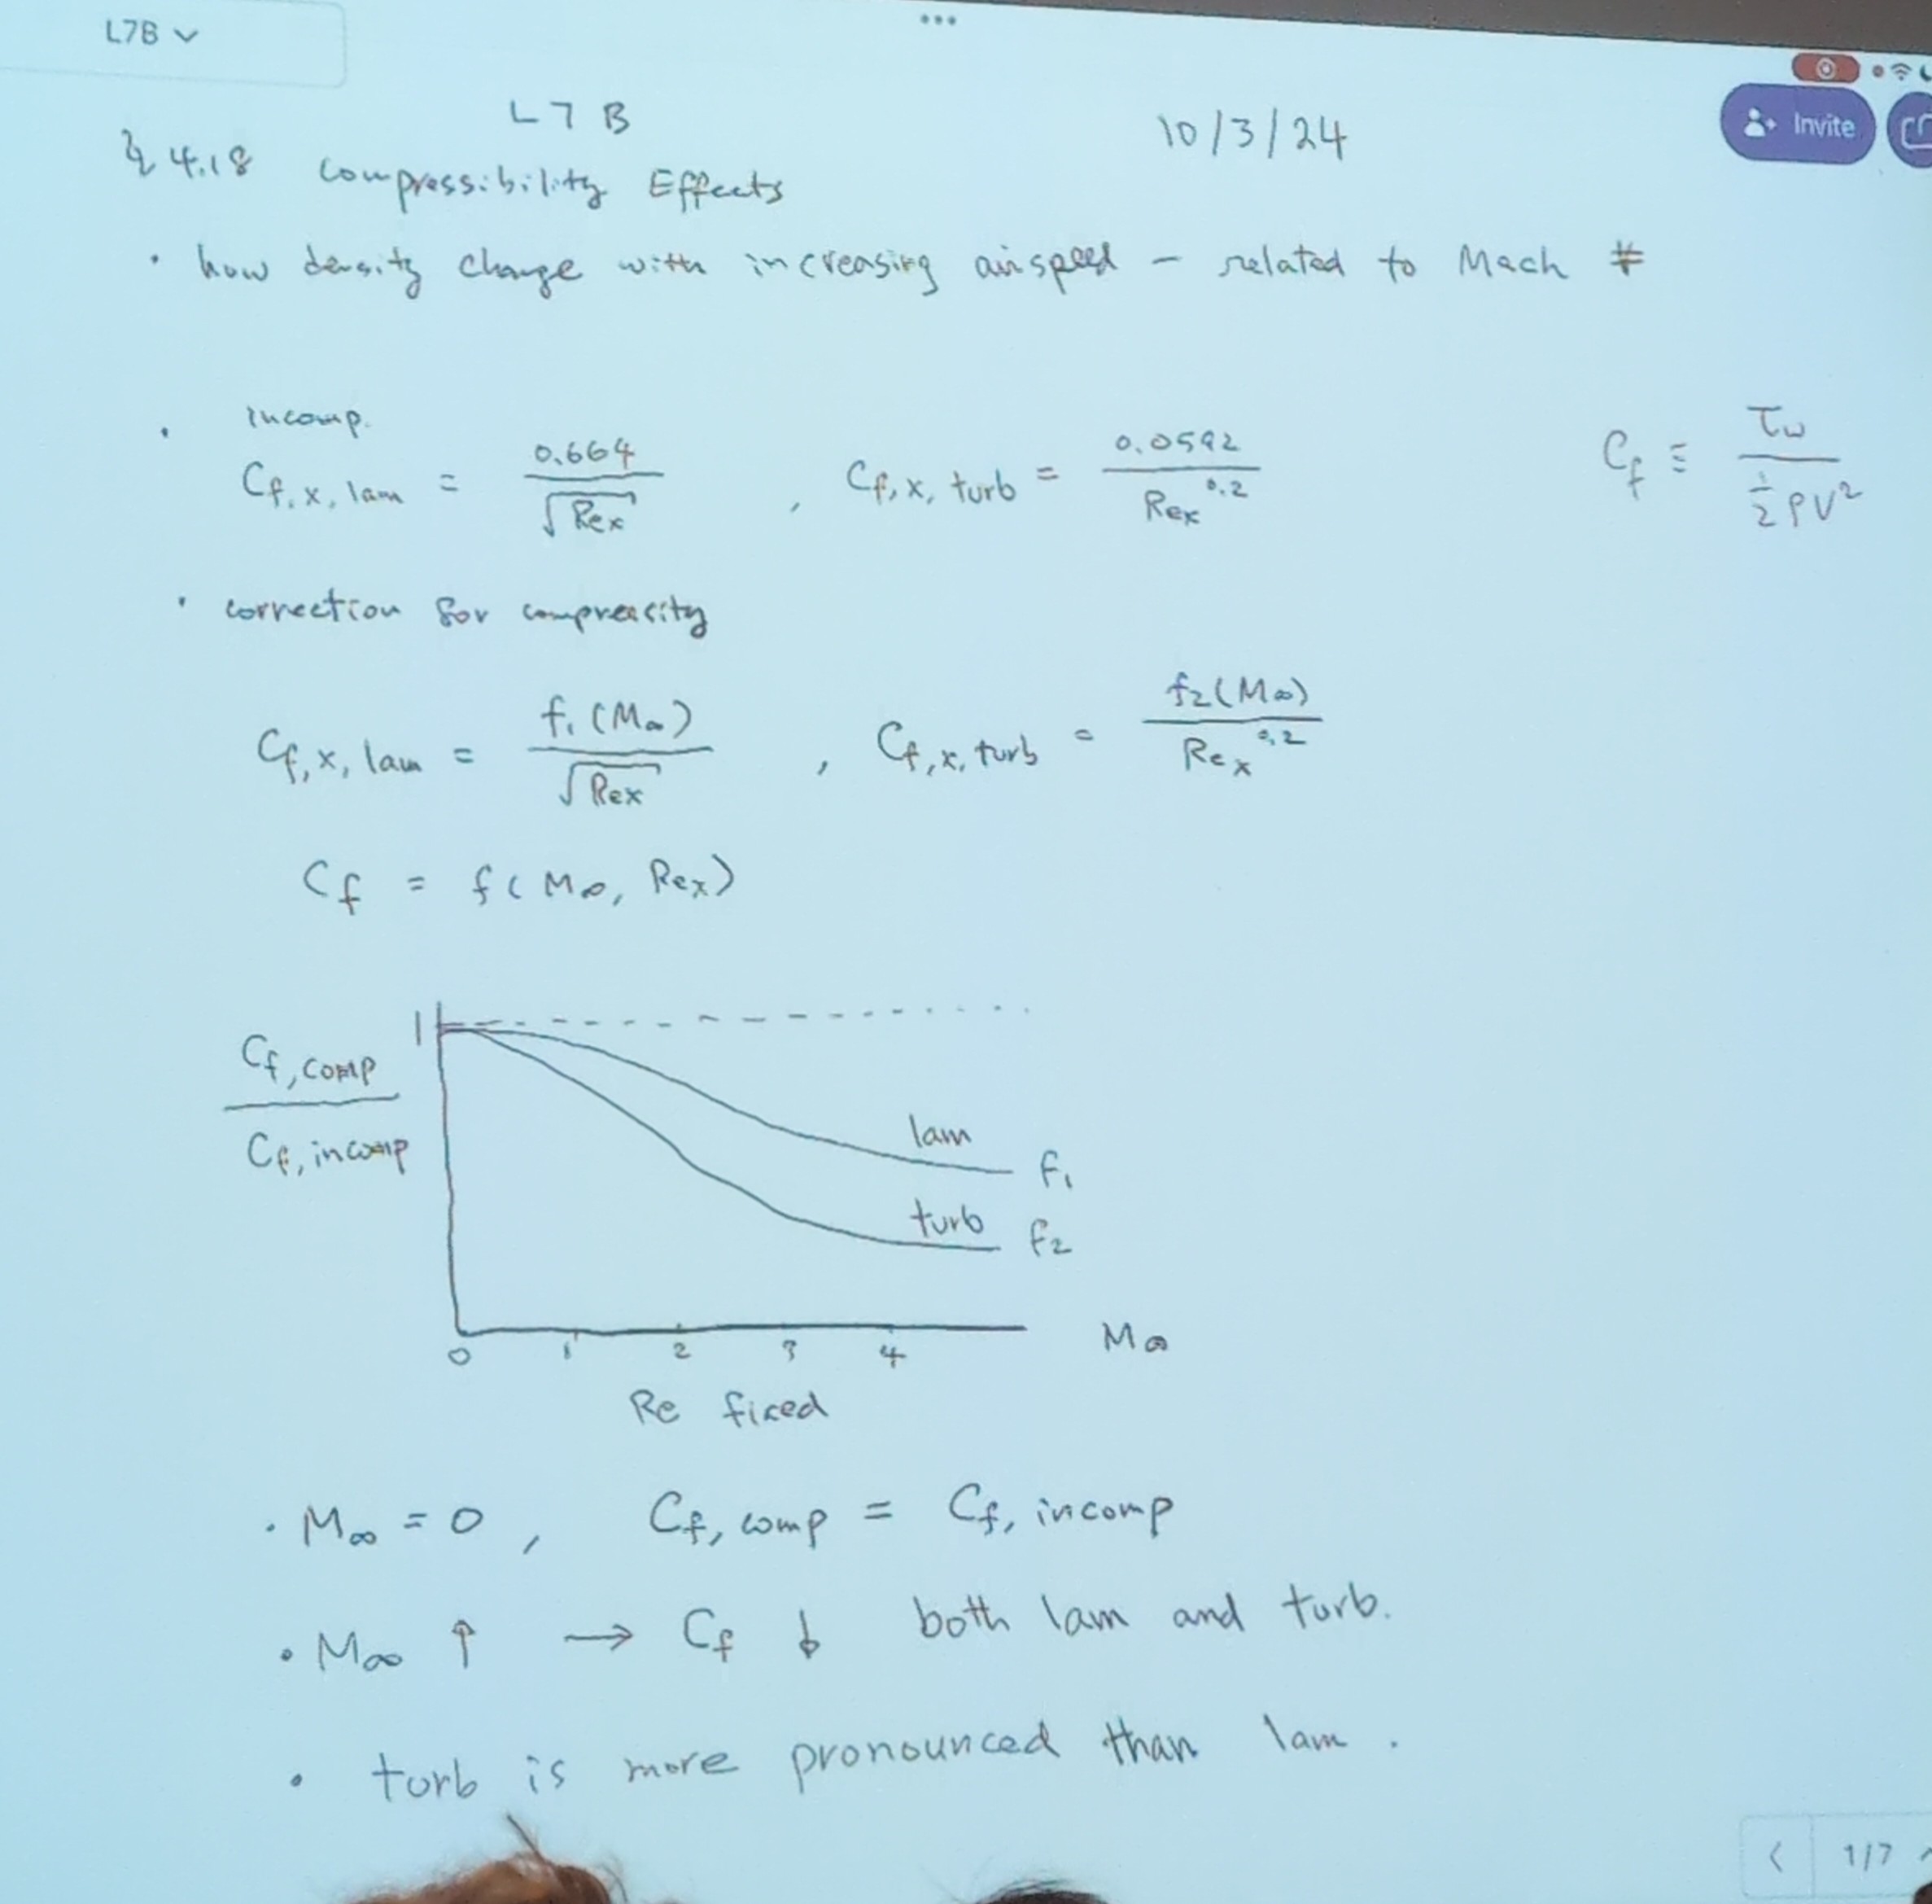 L7B
•••
Invite
L7B
10/3/24
§ 4.18 Compressibility Effects
• how density change with increasing airspeed – related to Mach #
incomp.
• Cf,x,lam = 0.664 / √Rex , Cf,x,turb = 0.0592 / Rex^0.2
Cf ≡ τw / ½ρV²
• correction for compressity
Cf,x,lam = f1(M∞) / √Rex , Cf,x,turb = f2(M∞) / Rex^0.2
Cf = f(M∞, Rex)
1
Cf,comp / Cf,incomp
lam f1
turb f2
0 1 2 3 4 M∞
Re fixed
• M∞ = 0, Cf,comp = Cf,incomp
• M∞ ↑ → Cf ↓ both lam and turb.
• turb is more pronounced than lam.
< 1/7